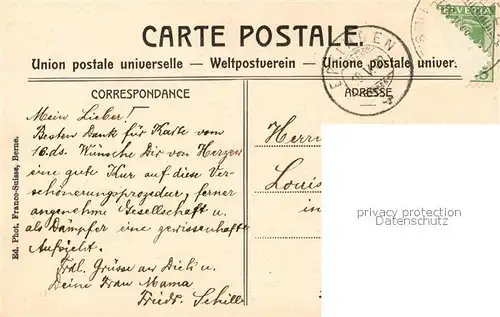 CARTE POSTALE.
HELVETIA
Union postale universelle – Weltpostverein – Unione postale univer.
CORRESPONDANCE
ADRESSE
Mein Lieber!
Besten Dank für Karte vom
16. ds. Wünsche Dir von Herzen
eine gute Kur auf diese Ver-
schönerungsprozedur, ferner
angenehme Gesellschaft u.
als Dämpfer eine gewissenhafte
Aufsicht.
Frdl. Grüsse an Dich u.
Deine Frau Mama
Friedr. Schill
Herrn
Louis
in
Ed. Phot. Franco-Suisse, Berne.
privacy protection
Datenschutz